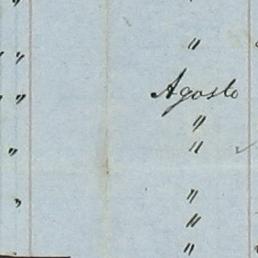 "
" "
"
Agosto
" "
"
"
"
"
"
"
"